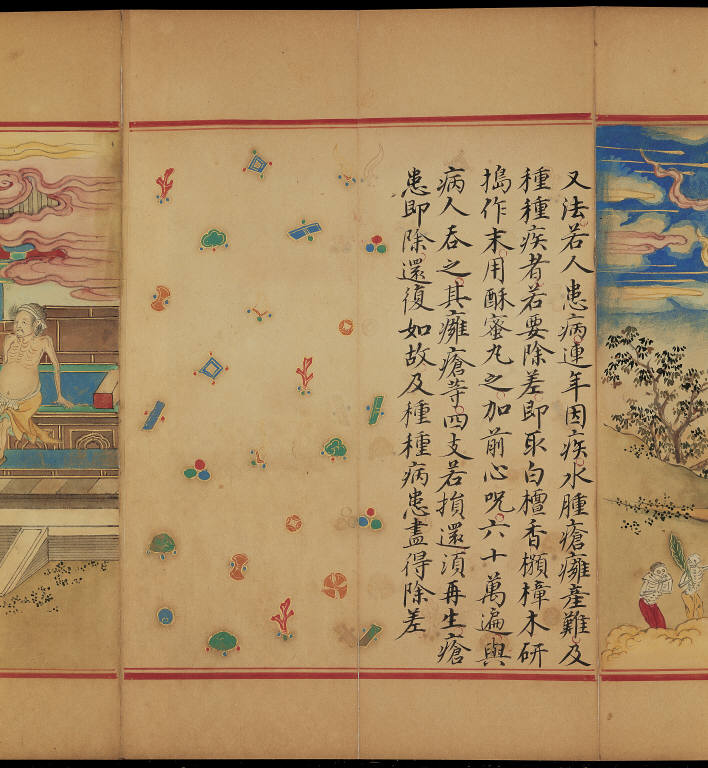 又法若人患病連年因疾水腫瘡癰產難及
種種疾者若要除差即取白檀香櫯樟木研
搗作末用酥蜜丸之加前心呪六十萬遍與
病人吞之其癰瘡等四支若損還須再生瘡
患即除還復如故及種種病患盡得除差